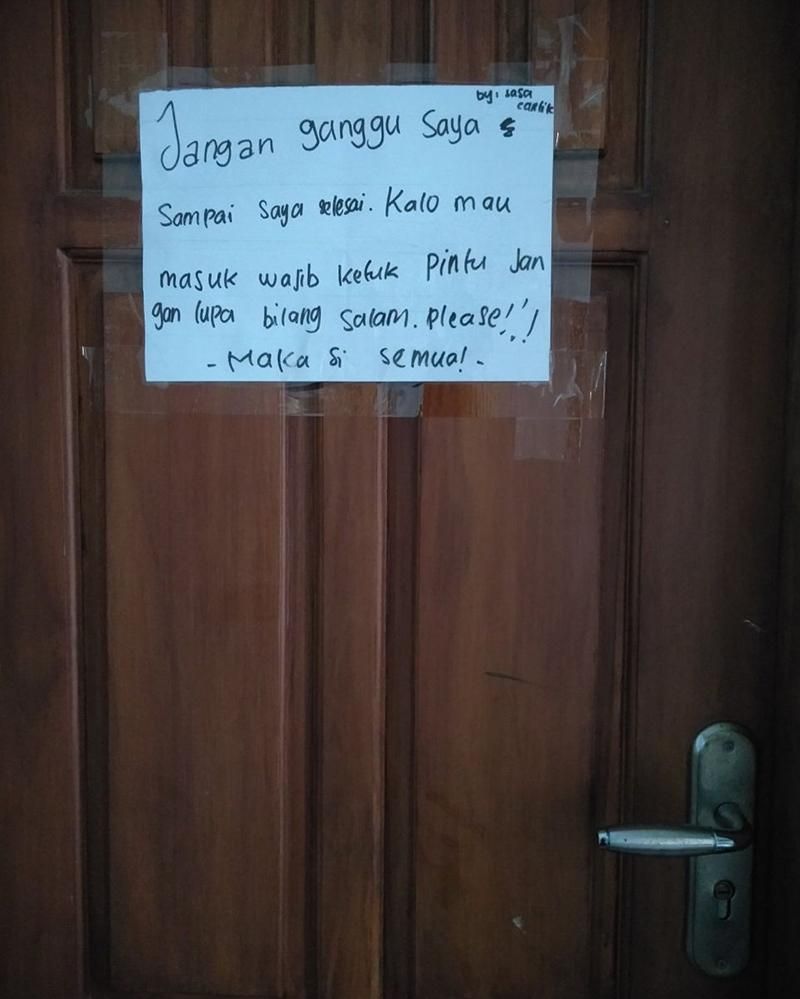 by: sasa
cantik
Jangan ganggu saya
Sampai saya selesai. Kalo mau
masuk wajib ketuk Pintu Jan
gan lupa bilang salam. please!!!
- Maka si semua! -